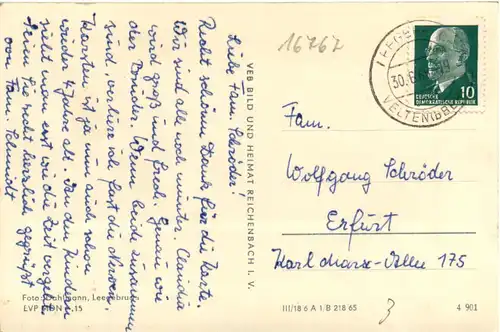 Liebe Fam. Schröder!
Recht schönen Dank für die Karte.
Wir sind alle noch munter. Claudia
wird groß und frech. Genau wie
der Bruder. Wenn beide zusammen
sind, verliere ich fast die Nerven.
Karsten ist ja nun auch schon
wieder 4 Jahre alt. An den Kindern
sieht man erst wie die Zeit vergeht.
Seien Sie recht herzlich gegrüßt
von Fam. Schmidt
Foto: Dahlmann, Leegebruch
EVP MDN 0,15
VEB BILD UND HEIMAT REICHENBACH I. V.
16767
30.6
VELTEN
10
DEUTSCHE
DEMOKRATISCHE REPUBLIK
Fam.
Wolfgang Schröder
Erfurt
Karl Marx-Allee 175
III/18 6 A 1 B 218 65
4 901
3